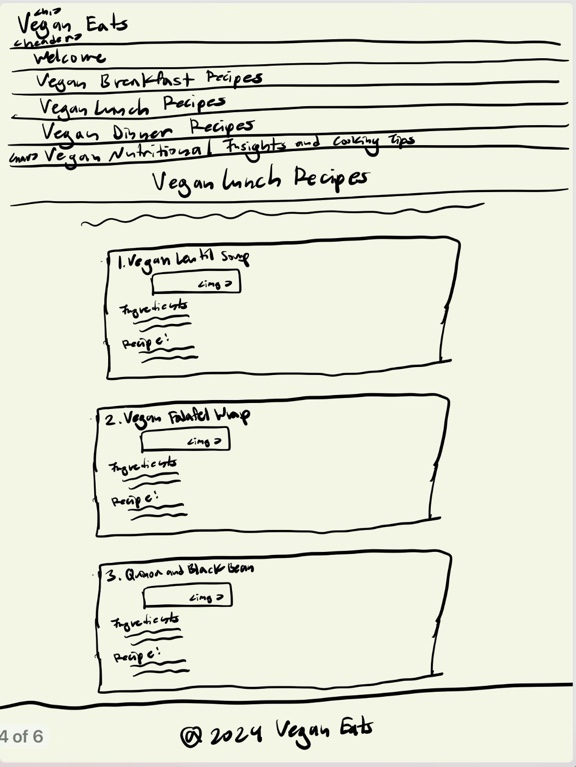 <h1>
Vegan Eats
<header>
Welcome
Vegan Breakfast Recipes
Vegan Lunch Recipes
Vegan Dinner Recipes
Vegan Nutritional Insights and Cooking Tips
Vegan Lunch Recipes
1. Vegan Lentil Soup
<img>
Ingredients
Recipe:
2. Vegan Falafel Wrap
<img>
Ingredients
Recipe:
3. Quinoa and Black Bean
<img>
Ingredients
Recipe:
@ 2024 Vegan Eats
4 of 6